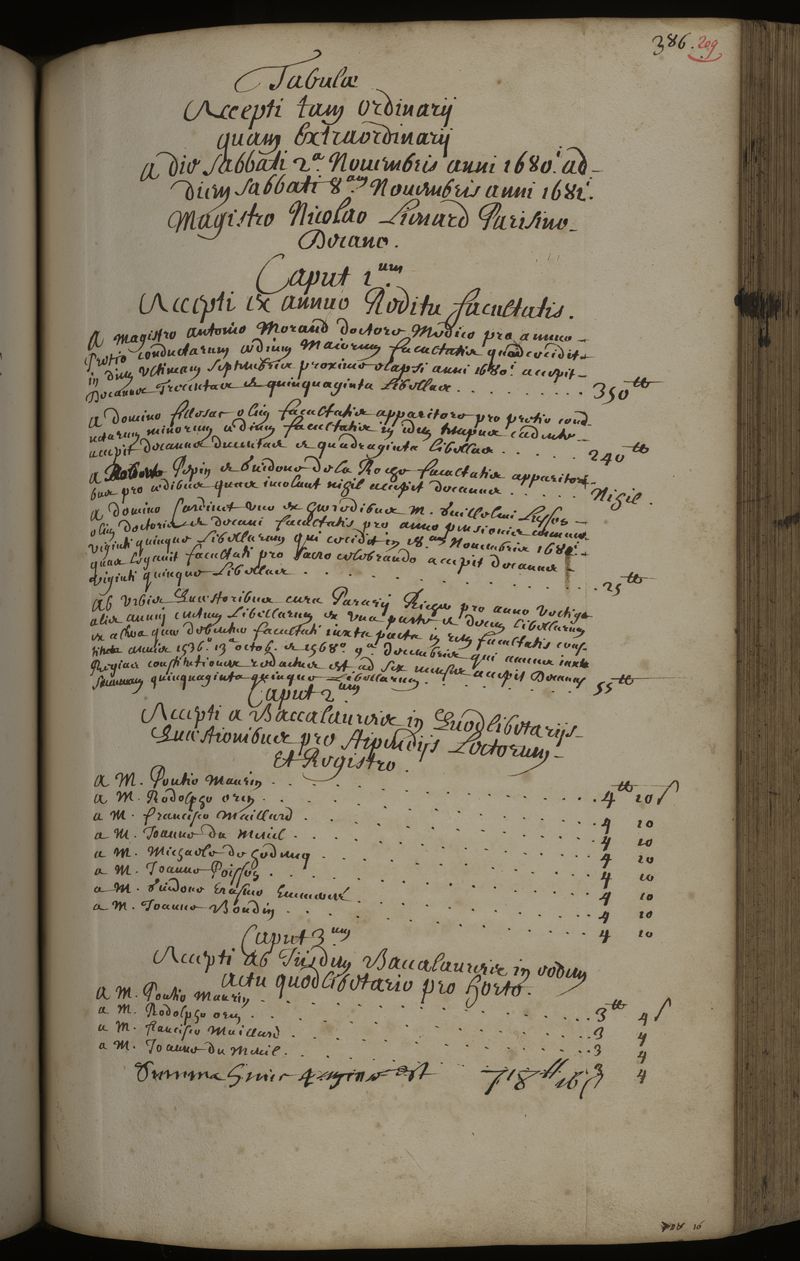 386. 209
Tabulæ
Accepti tam ordinarij
quam Extraordinarij
a die Sabbati 2.ª Nouembris anni 1680.i ad
diem Sabbati 8.am Nouembris anni 1681.i
Magistro Nicolao Lienard Parisino
Decano.
Caput 1.um
Accepti ex annuo Reditu facultatis.
A magistro antonio Morand doctore Medico pro annuo
Pretio conductarum ædium Maiorum facultatis quod cecidit
in diem Vltimam Septembris proximè elapsi anni 1680.i accepit
Decanus Trecentas et quinquaginta Libellas . . . . . . . . 350 tt
A Domino fillosac olim facultatis apparitore pro pretio cond
uctarum minorum ædium facultatis in idem tempus cadente
accepit decanus ducentas et quadraginta libellas . . . . . 240 tt
A Roberto Pepin et Guidone de la Roege facultatis apparitori
bus pro ædibus quas incolunt nihil accepit decanus . . . . . Nihil.
A domino Cardinet uno ex hæredibus M. Guillelmi
olim doctoris et decani facultatis pro anno pensionis
viginti quinque Libellarum qui cecidit in 18.am Nouembris 1680.i
quas Legauit facultati pro sacro celebrando accepit decanus
viginti quinque Libellas . . . . . . . . . . . 25 tt
Ab Vrbis Quæstoribus cura pro anno Vectiga
alis annui centum Libellarum ex una parte et decem Libellarum
ex altera quæ debentur facultati iuxta pacta in rem facultatis cons
tituta annis 1536.o 13.a octob. et 1568.o 9.a decembris qui annus iuxta
Regias constitutiones redactus est ad sex menses accepit Decanus
Summam quinquaginta quinque Libellarum . . . . . . . . 55 tt
Caput 2.um
Accepti a Baccalaureis in Quodlibetarijs
Quæstionibus pro stipendijs Lectorum
Et Registro.
A M. Pontio Maurin . . . . . . . . . 4 tt 10 s
a M. Rodolpho . . . . . . . . . 4 10
a M. francisco Maillard . . . . . . . . . 4 10
a M. Joanne du Mesnil . . . . . . . . . 4 10
a M. Michaele de . . . . . . . . . 4 10
a M. Joanne Poisson . . . . . . . . . 4 10
a M. Guidone Erasmo . . . . . . . . . 4 10
a M. Joanne Boudin . . . . . . . . . 4 10
Caput 3.um
Accepti ab Iisdem Baccalaureis in eodem
actu quodlibetario pro horto.
A M. Pontio Maurin . . . . . . . . . 3 tt 4 s
a M. Rodolpho . . . . . . . . . 3 4
a M. francisco Maillard . . . . . . . . . 3 4
a M. Joanne du Mesnil . . . . . . . . . 3 4
Summa huius paginæ est 718 tt 16 s